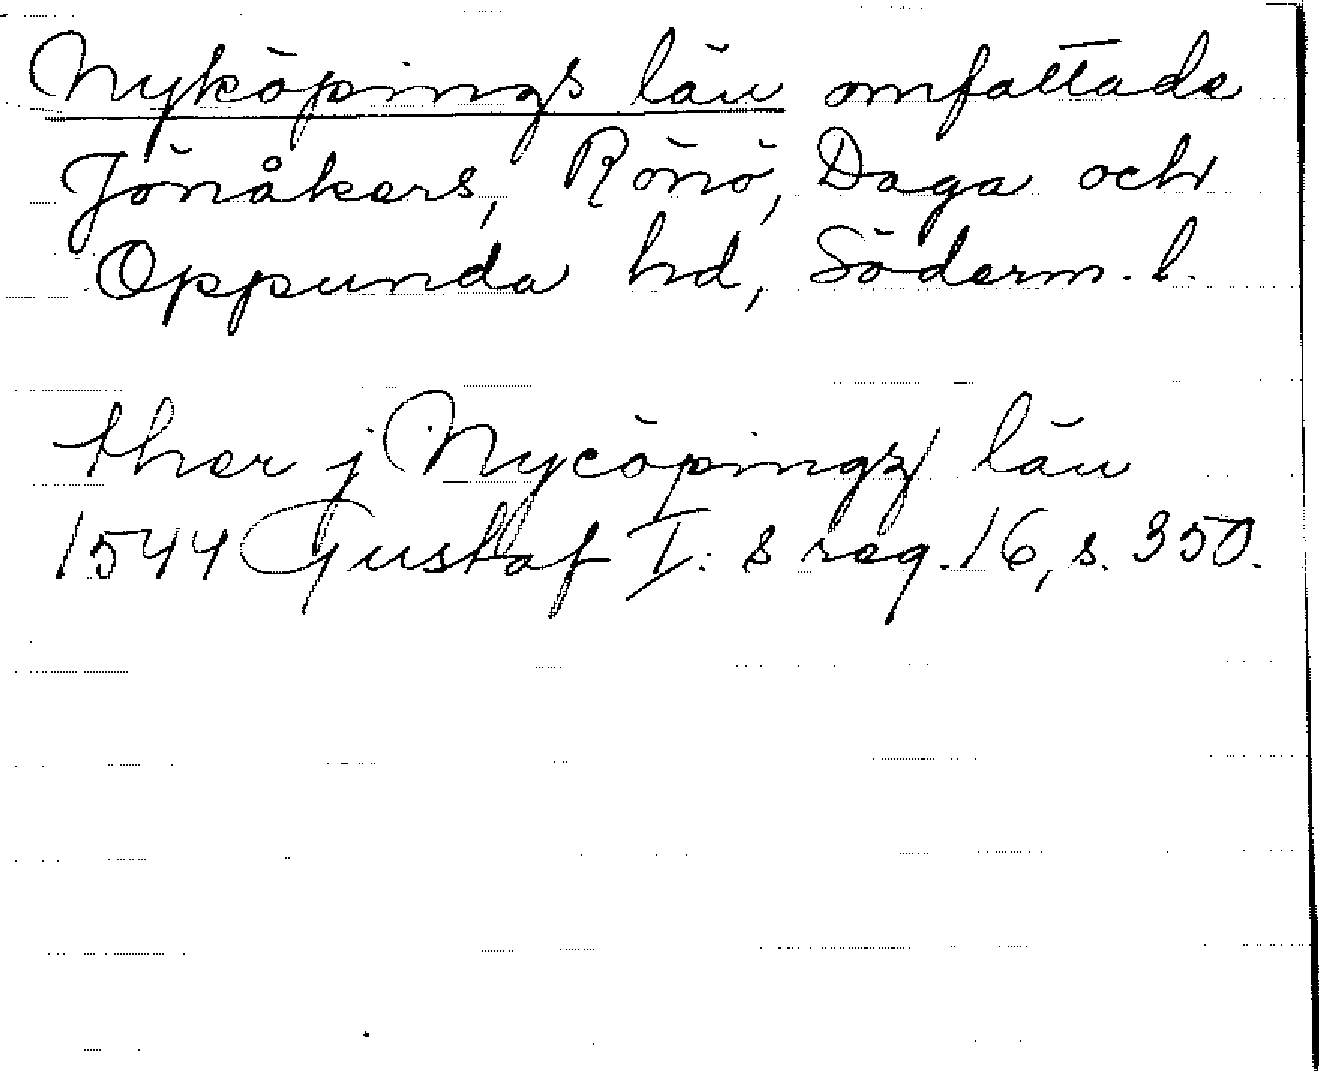 Nyköpings län omfattade
Jönåkers, Rönö, Daga och
Oppunda hd, Söderm. l.
ther j Nycöpingz län
1544 Gustaf I: s reg. 16, s. 350.